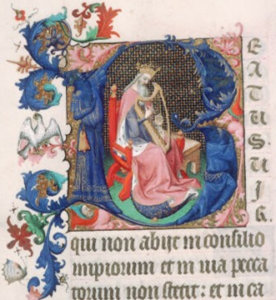 BEATUS UIR
qui non abijt in consilio
impiorum et in uia pecca
torum non stetit: et in ca